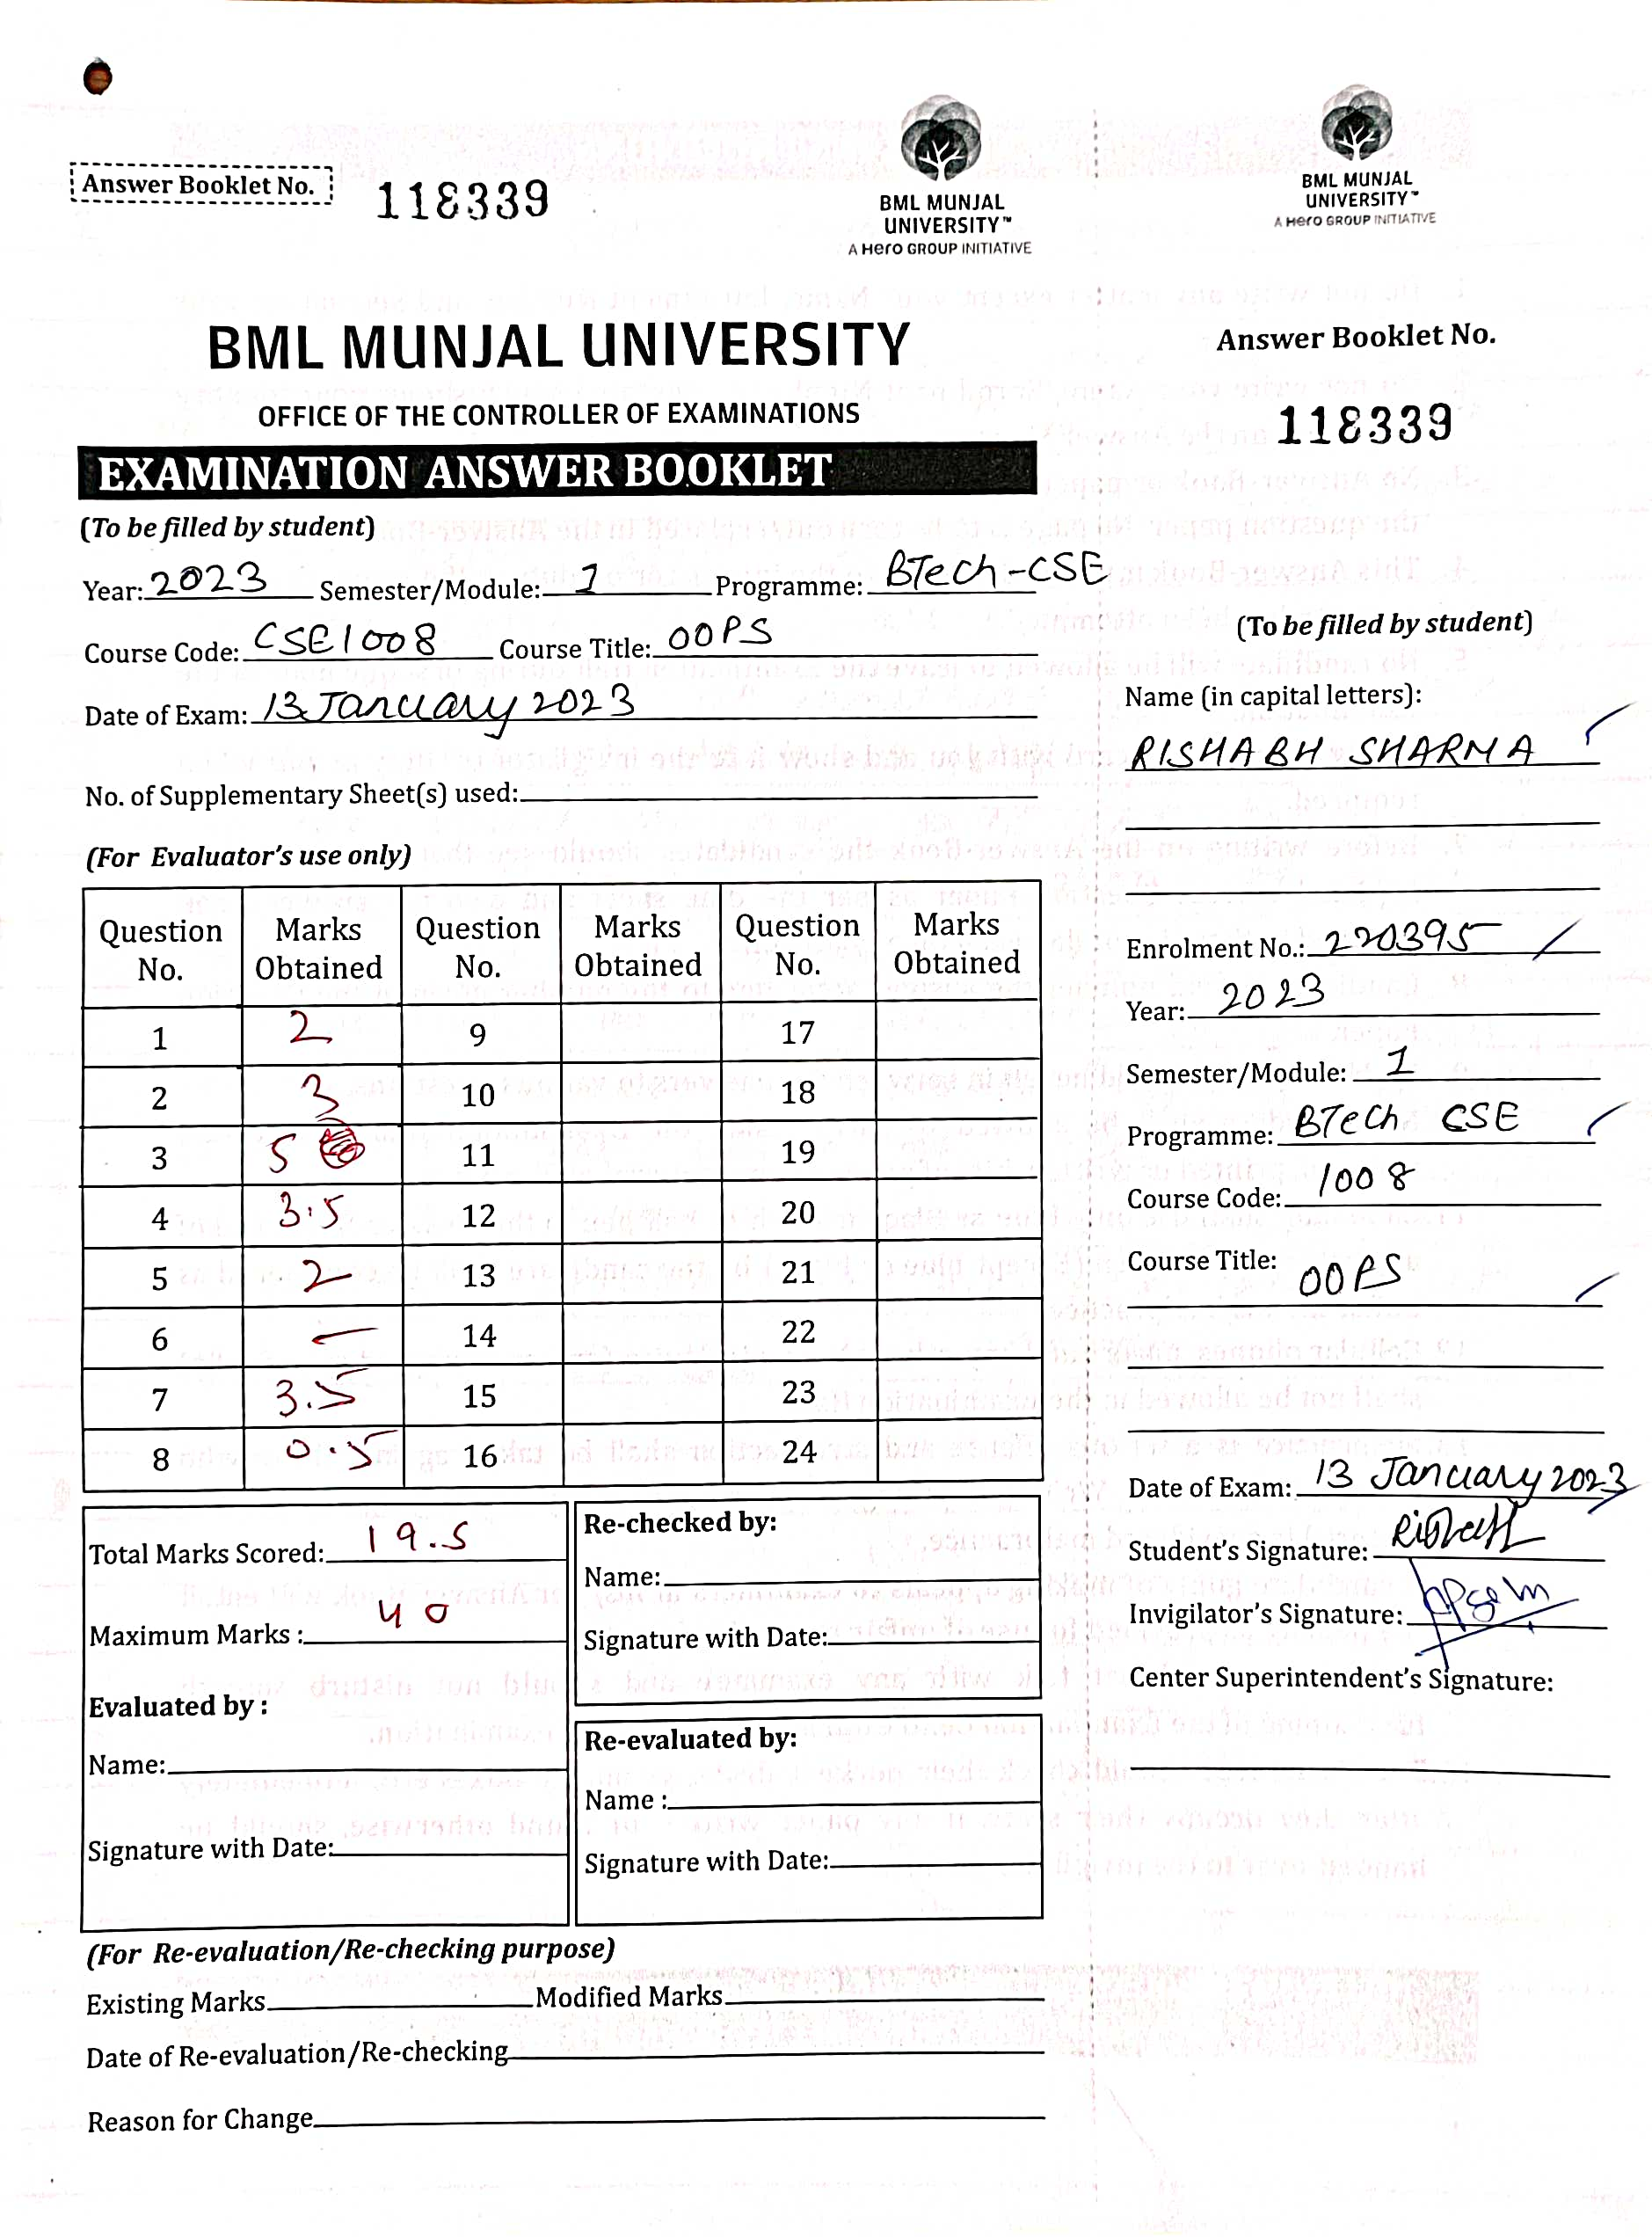 Answer Booklet No. 118339
BML MUNJAL
UNIVERSITY™
A Hero GROUP INITIATIVE
BML MUNJAL UNIVERSITY
OFFICE OF THE CONTROLLER OF EXAMINATIONS
EXAMINATION ANSWER BOOKLET
(To be filled by student)
Year: 2023 Semester/Module: 1 Programme: BTech-CSE
Course Code: CSE1008 Course Title: OOPS
Date of Exam: 13 January 2023
No. of Supplementary Sheet(s) used:
(For Evaluator's use only)
Question No. Marks Obtained Question No. Marks Obtained Question No. Marks Obtained
1 2 9 17
2 3 10 18
3 5 11 19
4 3.5 12 20
5 2 13 21
6 - 14 22
7 3.5 15 23
8 0.5 16 24
Total Marks Scored: 19.5
Maximum Marks : 40
Evaluated by :
Name:
Signature with Date:
Re-checked by:
Name:
Signature with Date:
Re-evaluated by:
Name :
Signature with Date:
(For Re-evaluation/Re-checking purpose)
Existing Marks Modified Marks
Date of Re-evaluation/Re-checking
Reason for Change
BML MUNJAL
UNIVERSITY™
A Hero GROUP INITIATIVE
Answer Booklet No.
118339
(To be filled by student)
Name (in capital letters):
RISHABH SHARMA
Enrolment No.: 220395
Year: 2023
Semester/Module: 1
Programme: BTech CSE
Course Code: 1008
Course Title: OOPS
Date of Exam: 13 January 2023
Student's Signature:
Invigilator's Signature:
Center Superintendent's Signature: